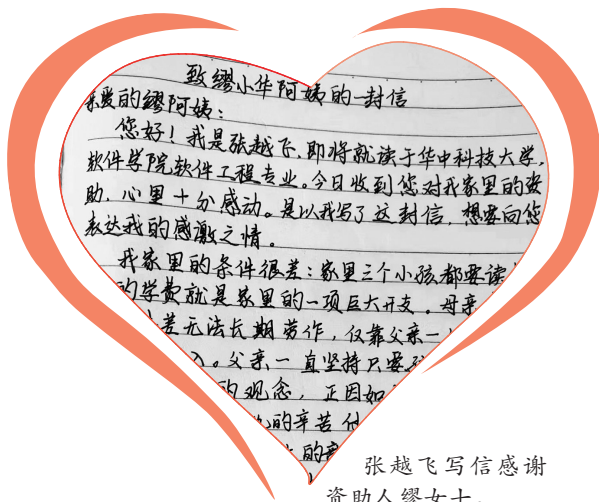 致缪小华阿姨的一封信
亲爱的缪阿姨：
您好！我是张越飞，即将就读于华中科技大学，
软件学院软件工程专业。今日收到您对我家里的资
助，心里十分感动。是以我写了这封信，想要向您
表达我的感激之情。
我家里的条件很差：家里三个小孩都要读
的学费就是家里的一项巨大开支。母亲
差无法长期劳作，仅靠父亲一
入。父亲一直坚持只要
的观念，正因如
的辛苦付
的
张越飞写信感谢
资助人缪女士。